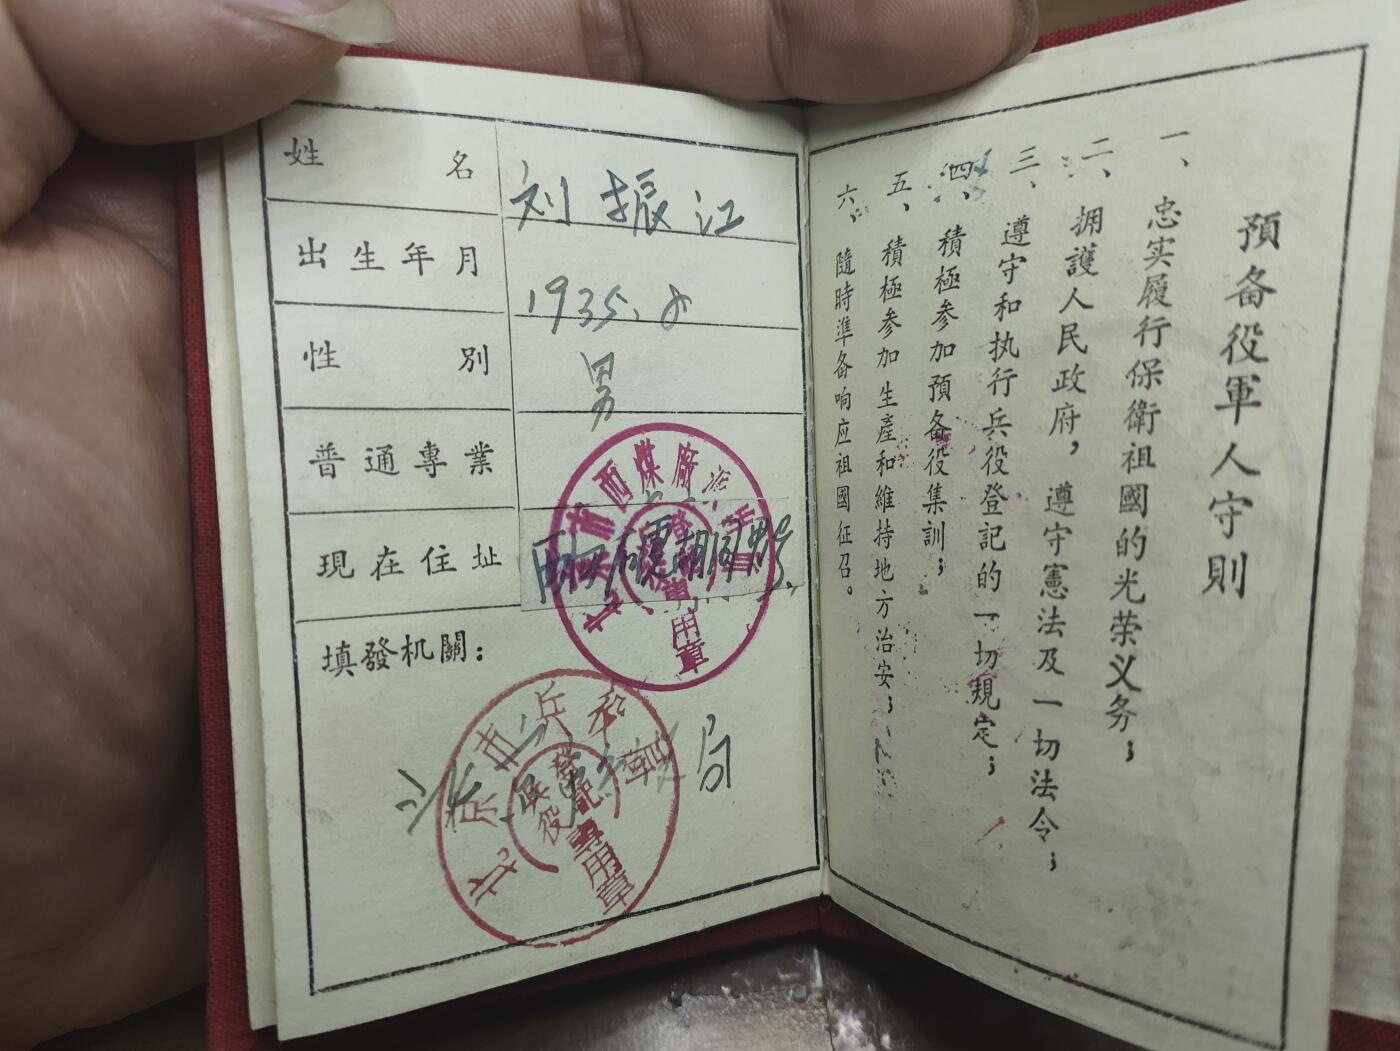 姓名 刘振江
出生年月 1935.8
性別 男
普通專業
現在住址
填發机關：
局
西煤廠
用章
北京市兵
兵役登記
專用章
預备役軍人守則
一、忠实履行保衛祖國的光荣义务；
二、拥護人民政府，遵守憲法及一切法令；
三、遵守和执行兵役登記的一切規定；
四、積極参加預备役集訓；
五、積極参加生產和維持地方治安；
六、隨時準备响应祖國征召。